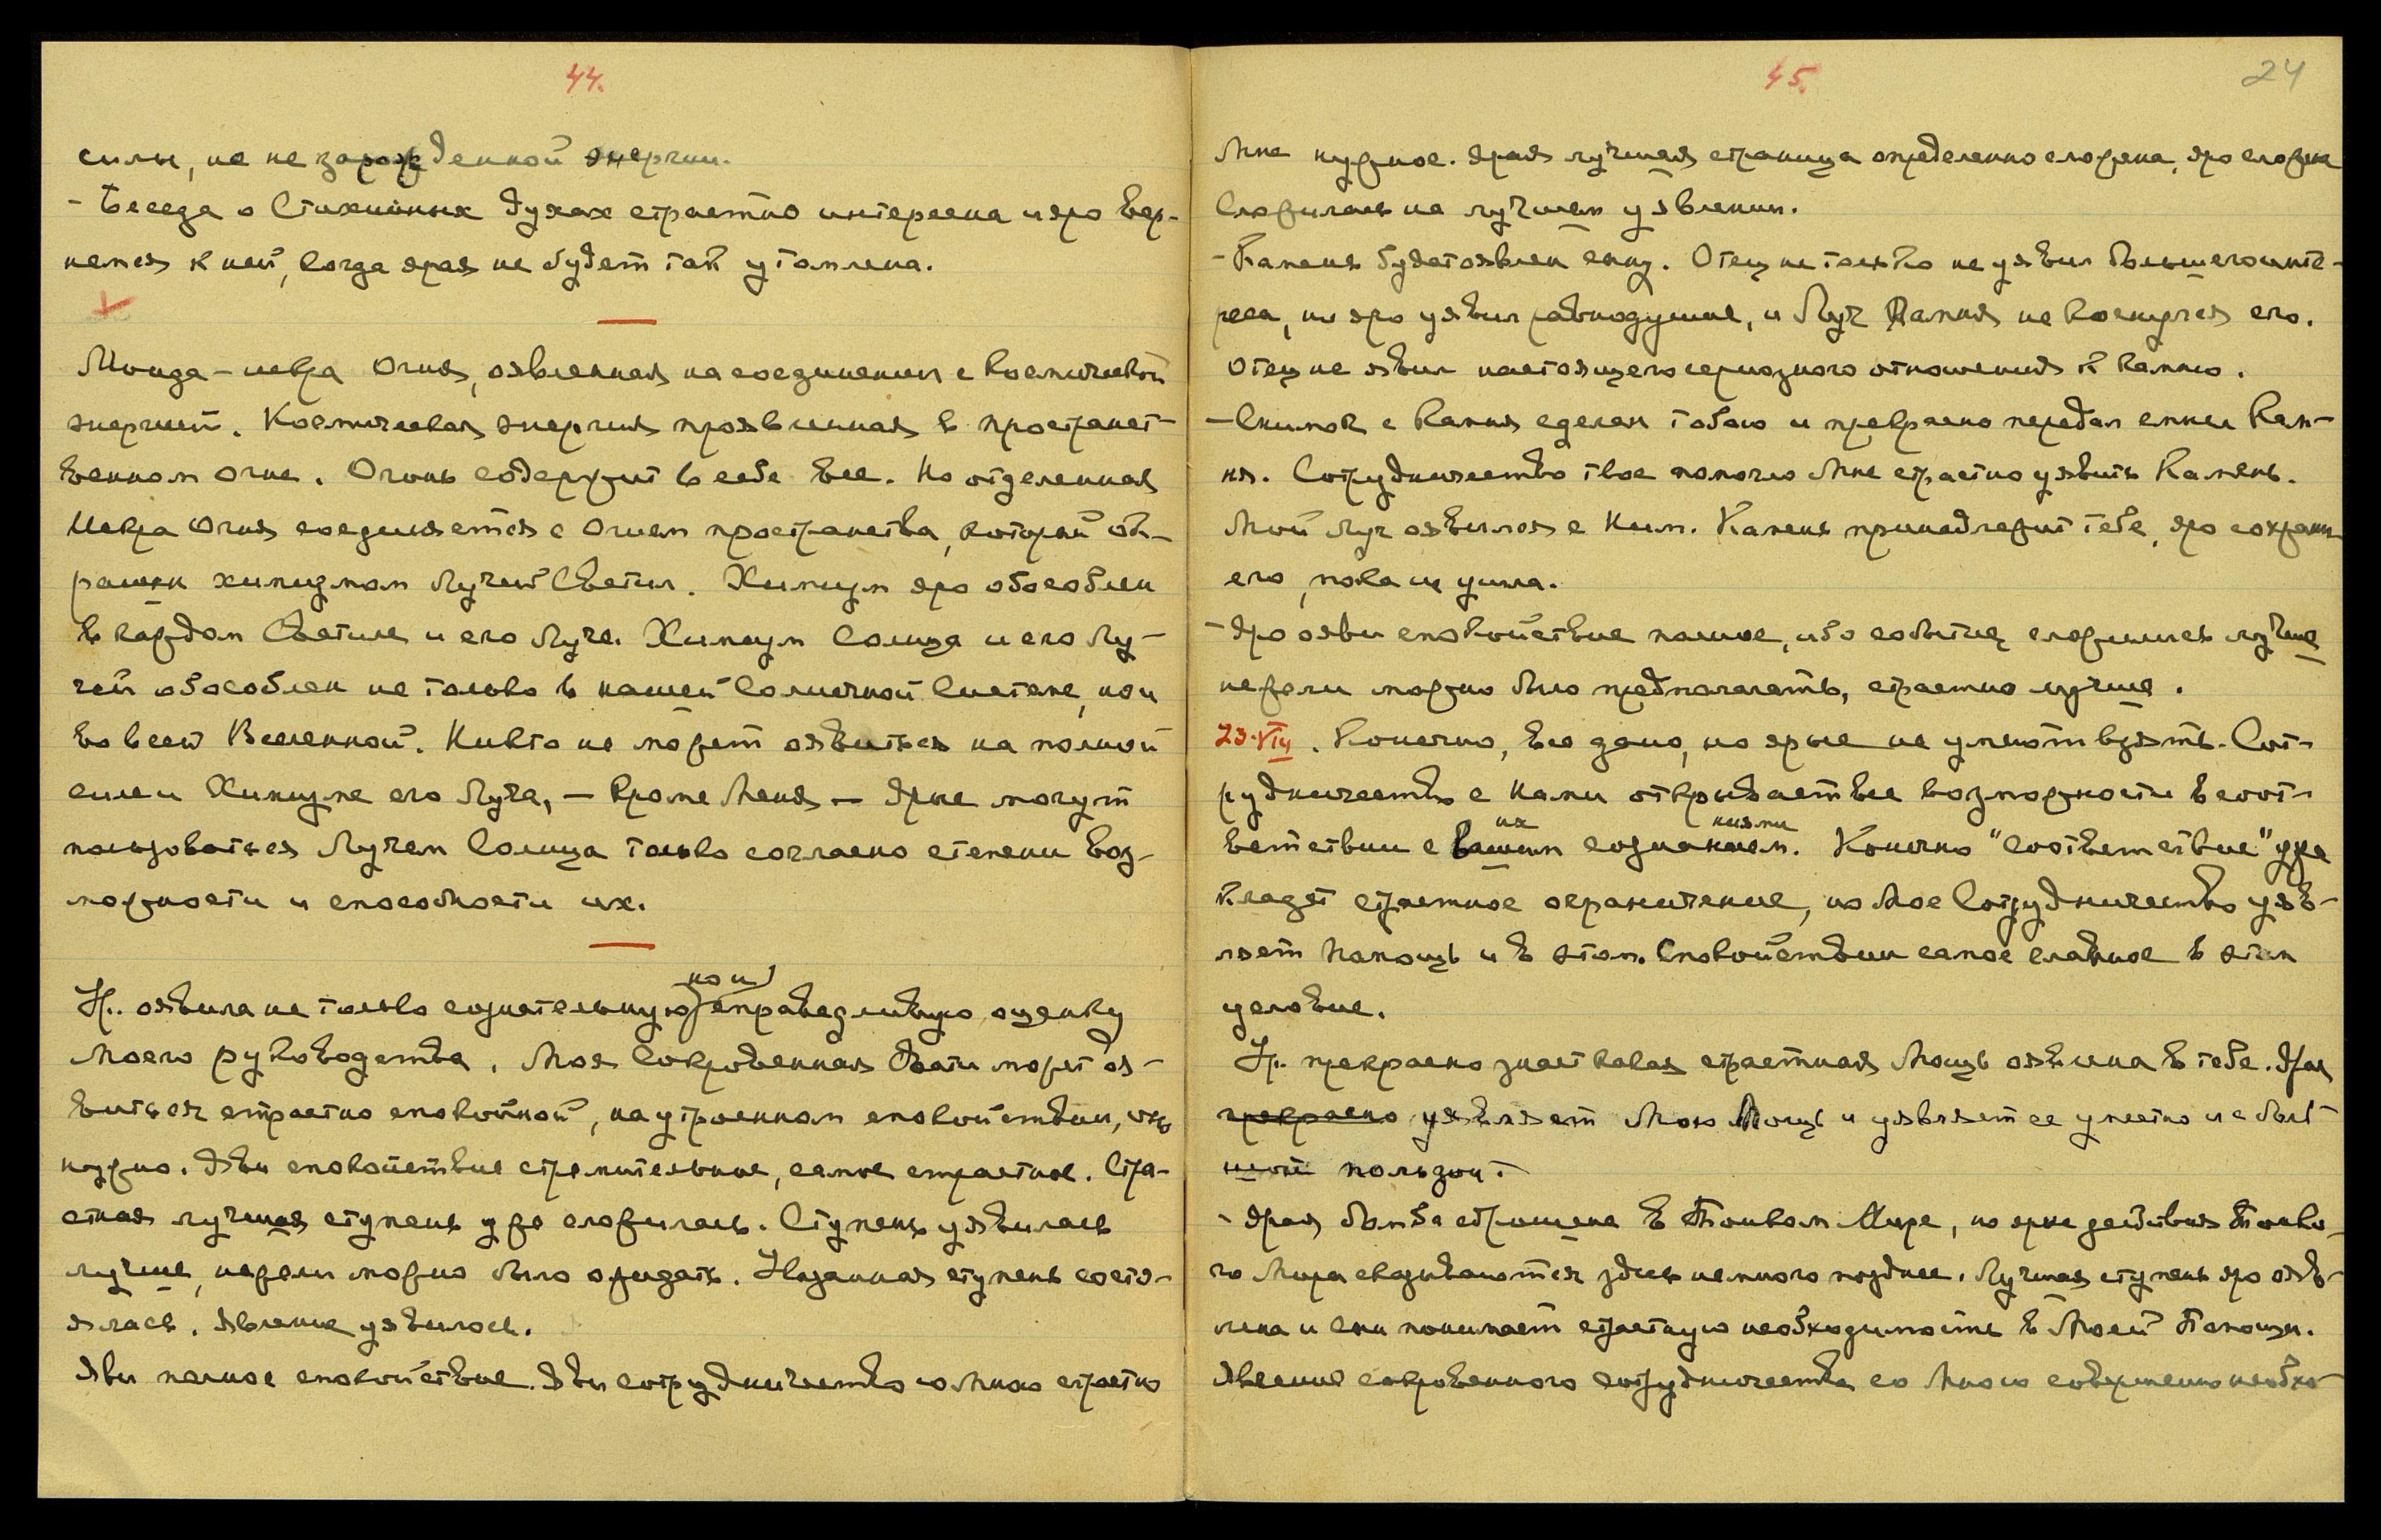 44.
силы, но не зарожденной энергии.
- Беседа о Стихийных духах страстно интересна и яро вер-
немся к ней, когда ярая не будет так утомлена.
Монада - искра Огня, оявленная на соединении с космической
энергией. Космическая энергия проявленная в пространст-
венном огне. Огонь содержит в себе все. Но отделенная
Искра Огня соединяется с Огнем пространства, который ок-
рашен химизмом Лучей Светил. Химизм яро обособлен
в каждом Светиле и его Луче. Химизм Солнца и его Лу-
чей обособлен не только в нашей Солнечной Системе, но и
во всей Вселенной. Никто не может оявиться на полной
силе и Химизме его Луча, - кроме Меня - Ярые могут
пользоваться Лучем Солнца только согласно степени воз-
можности и способности их.
но и
Ур. оявила не только сознательную справедливую оценку
Моего руководства. Моя Сокровенная Свати может оя-
виться страстно спокойной, на утроенном спокойствии, оно
нужно. Яви спокойствие стремительное, самое страстное. Стра-
стная лучшая ступень уже сложилась. Ступень уявилась
лучше, нежели можно было ожидать. Указанная ступень состо-
ялась. Явление уявилось.
Яви полное спокойствие. Яви сотрудничество со Мною страстно
45.
24
Мне нужное. Ярая лучшая страница определенно сложена, яро сложена
Сложилась на лучшем уявлении.
- Камень будет оявлен сыну. Отец не только не уявил большего инте-
реса, но яро уявил равнодушие, и Луч Камня не коснулся его.
Отец не явил настоящего серьозного отношения к Камню.
- Снимок с Камня сделан тобою и прекрасно передал смысл Кам-
ня. Сотрудничество твое помогло Мне страстно уявить Камень.
Мой Луч оявился с Ним. Камень принадлежит тебе, яро сохрани
его, пока
- Яроояви спокойствие полное, ибо событие сложилось лучше
нежели можно было предполагать, страстно лучше.
23.VIII. Конечно, все дано, но ярые не умеют взять. Сот-
рудничество с Нами открывает все возможности в соот-
их ниями
ветствии с вашим сознанием. Конечно "соответствие" уже
кладет страстное ограничение, но Мое Сотрудничество уяв-
ляет Помощь и в этом. Спокойствии самое главное в этом
условие.
Ур. прекрасно знает какая страстная Мощь оявлена в тебе. Ярая
прекрасно уявляет Мою Мощь и уявляет ее уместно и с боль-
шой пользой.
- Ярая битва страшна в Тонком Мире, но ярые действия Тонко-
го Мира сказываются здесь немного позднее. Лучшая ступень яро ояв-
лена и сын понимает страстную необходимость в Моей Помощи.
Явление сокровенного сотрудничества со Мною совершенно необхо-